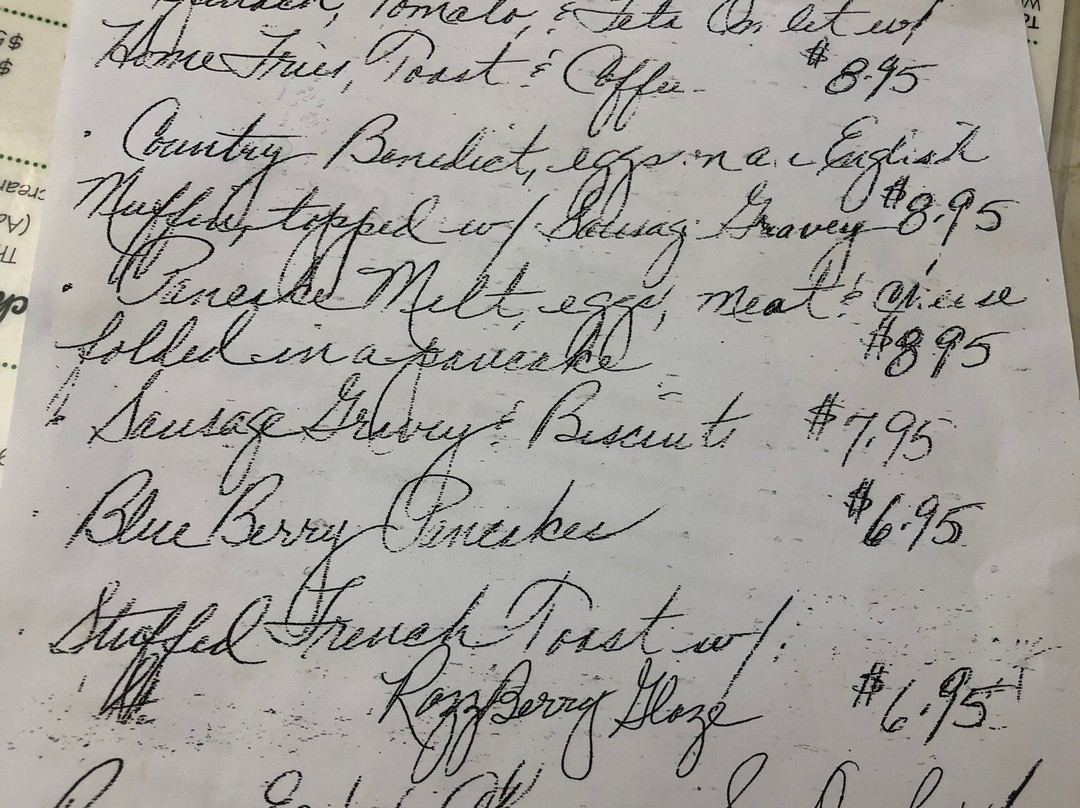 Tomato, & Feta Omlet w/
Home Fries, Toast & Coffee $8.95
· Country Benedict, eggs on a English
Muffin, topped w/ Sausag Gravey $8.95
· Pancake Melt, eggs, meat & cheese
folded in a pancake $8.95
Sausage Gravey & Biscuits $7.95
Blue Berry Pancakes $6.95
· Stuffed French Toast w/
RazzBerry Glaze $6.95